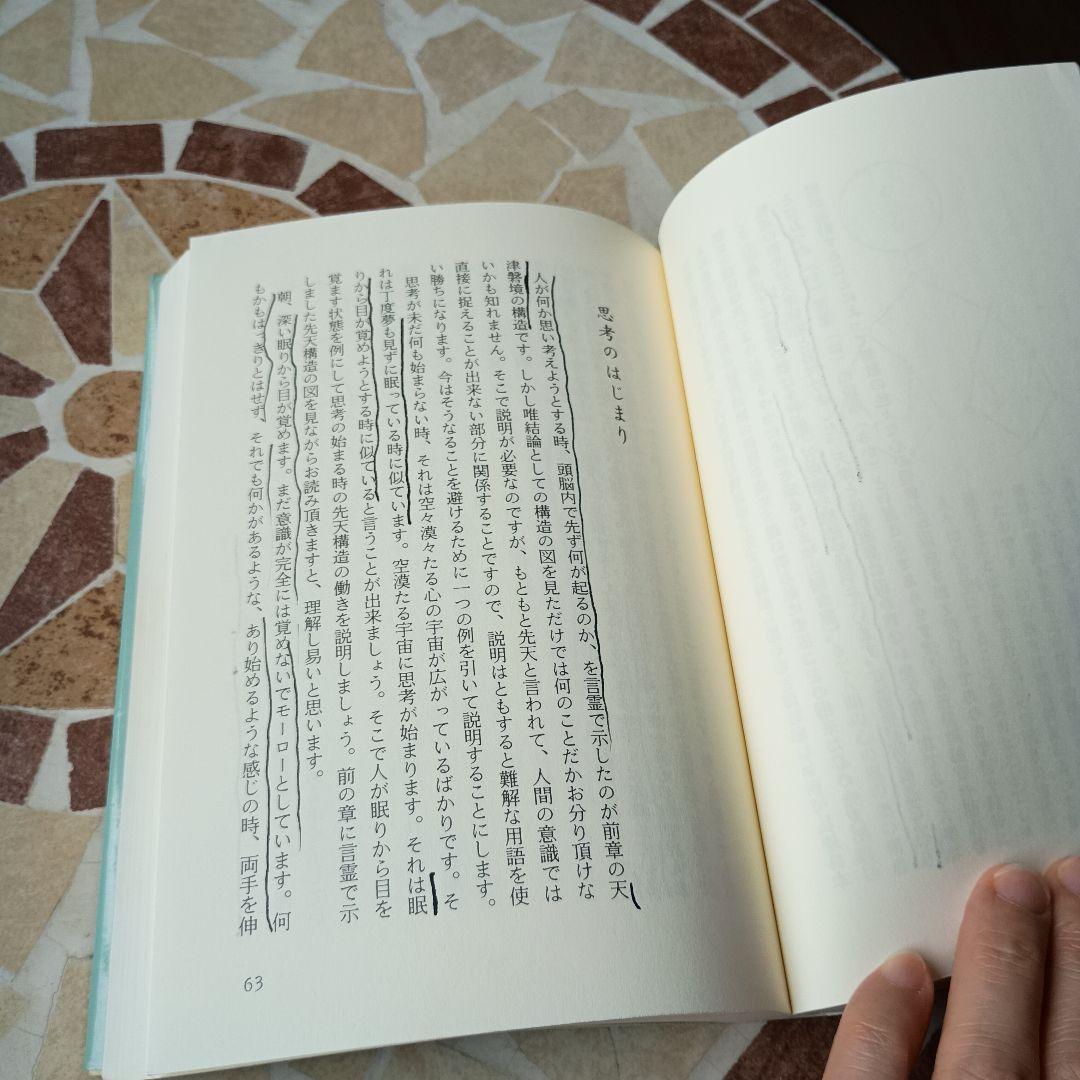 思考のはじまり
人が何か思い考えようとする時、頭脳内で先ず何が起るのか、を言霊で示したのが前章の天
津磐境の構造です。しかし唯結論としての構造の図を見ただけでは何のことだかお分り頂けな
いかも知れません。そこで説明が必要なのですが、もともと先天と言われて、人間の意識では
直接に捉えることが出来ない部分に関係することですので、説明はともすると難解な用語を使
い勝ちになります。今はそうなることを避けるために一つの例を引いて説明することにします。
思考が未だ何も始まらない時、それは空々漠々たる心の宇宙が広がっているばかりです。そ
れは丁度夢も見ずに眠っている時に似ています。空漠たる宇宙に思考が始まります。それは眠
りから目が覚めようとする時に似ていると言うことが出来ましょう。そこで人が眠りから目を
覚ます状態を例にして思考の始まる時の先天構造の働きを説明しましょう。前の章に言霊で示
しました先天構造の図を見ながらお読み頂きますと、理解し易いと思います。
朝、深い眠りから目が覚めます。まだ意識が完全には覚めないでモーローとしています。何
もかもはっきりとはせず、それでも何かがあるような、あり始めるような感じの時、両手を伸
63